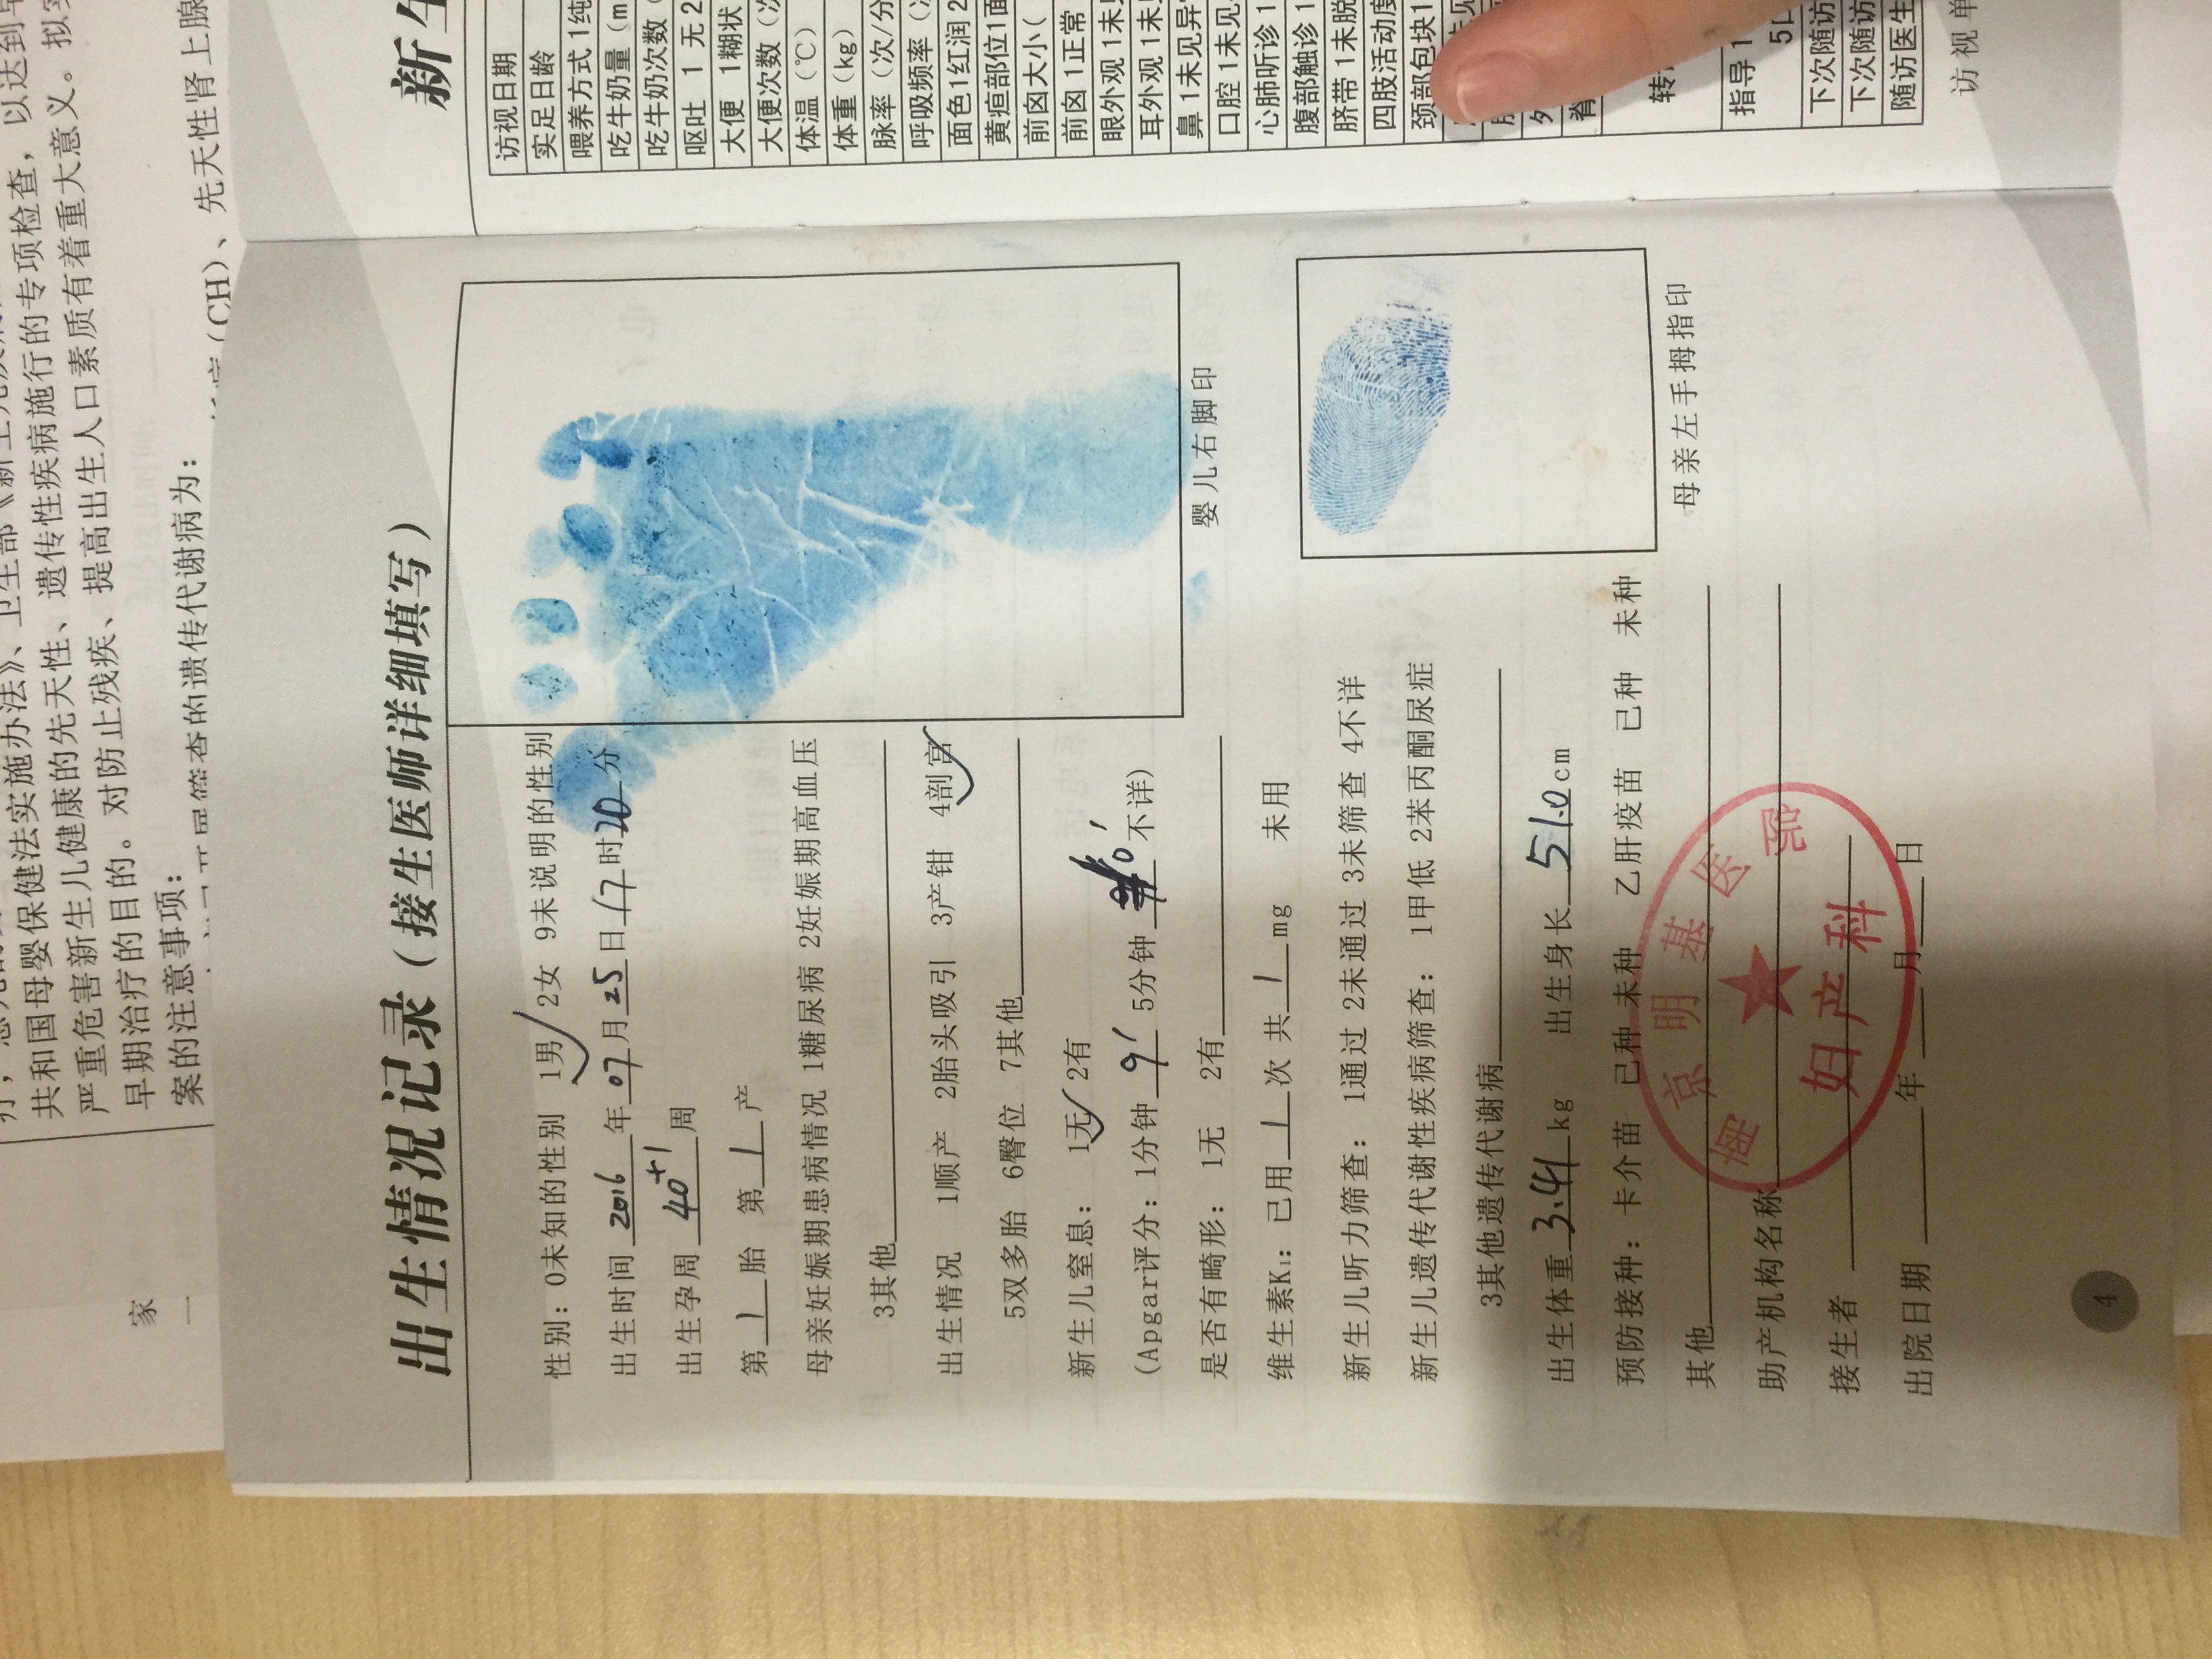 共和国母婴保健法实施办法》、卫生部《新生儿疾病
严重危害新生儿健康的先天性、遗传性疾病施行的专项检查，以达到早
早期治疗的目的。对防止残疾、提高出生人口素质有着重大意义。拟
案的注意事项：
的遗传代谢病为：
（CH）、先天性肾上腺
家
一
出生情况记录（接生医师详细填写）
性别：0未知的性别 1男 2女 9未说明的性别
出生时间 2016 年 07 月 25 日 17 时 20 分
出生孕周 40+1 周
第 1 胎 第 1 产
母亲妊娠期患病情况 1糖尿病 2妊娠期高血压
3其他
出生情况 1顺产 2胎头吸引 3产钳 4剖宫
5双多胎 6臀位 7其他
新生儿窒息： 1无 2有
(Apgar评分：1分钟 9' 5分钟 10' 不详)
是否有畸形： 1无 2有
维生素K₁：已用 1 次 共 1 mg 未用
新生儿听力筛查：1通过 2未通过 3未筛查 4不详
新生儿遗传代谢性疾病筛查： 1甲低 2苯丙酮尿症
3其他遗传代谢病
出生体重 3.41 kg 出生身长 51.0 cm
预防接种：卡介苗 已种 未种 乙肝疫苗 已种 未种
其他
助产机构名称
接生者
出院日期 年 月 日
京明基医院
妇产科
4
婴儿右脚印
母亲左手拇指印
新生
访视日期
实足日龄
喂养方式 1纯
吃牛奶量（m
吃牛奶次数（
呕吐 1 无 2
大便 1糊状
大便次数（次
体温（℃）
体重（kg）
脉率（次/分
呼吸频率（次
面色1红润2
黄疸部位1面
前囟大小（
前囟 1正常
眼外观 1未
耳外观 1未
鼻 1未见异
口腔 1未见
心肺听诊 1
腹部触诊 1
脐带 1未脱
四肢活动度
颈部包块1
脊
转
指导 1
5
下次随访
下次随访
随访医生
访视单